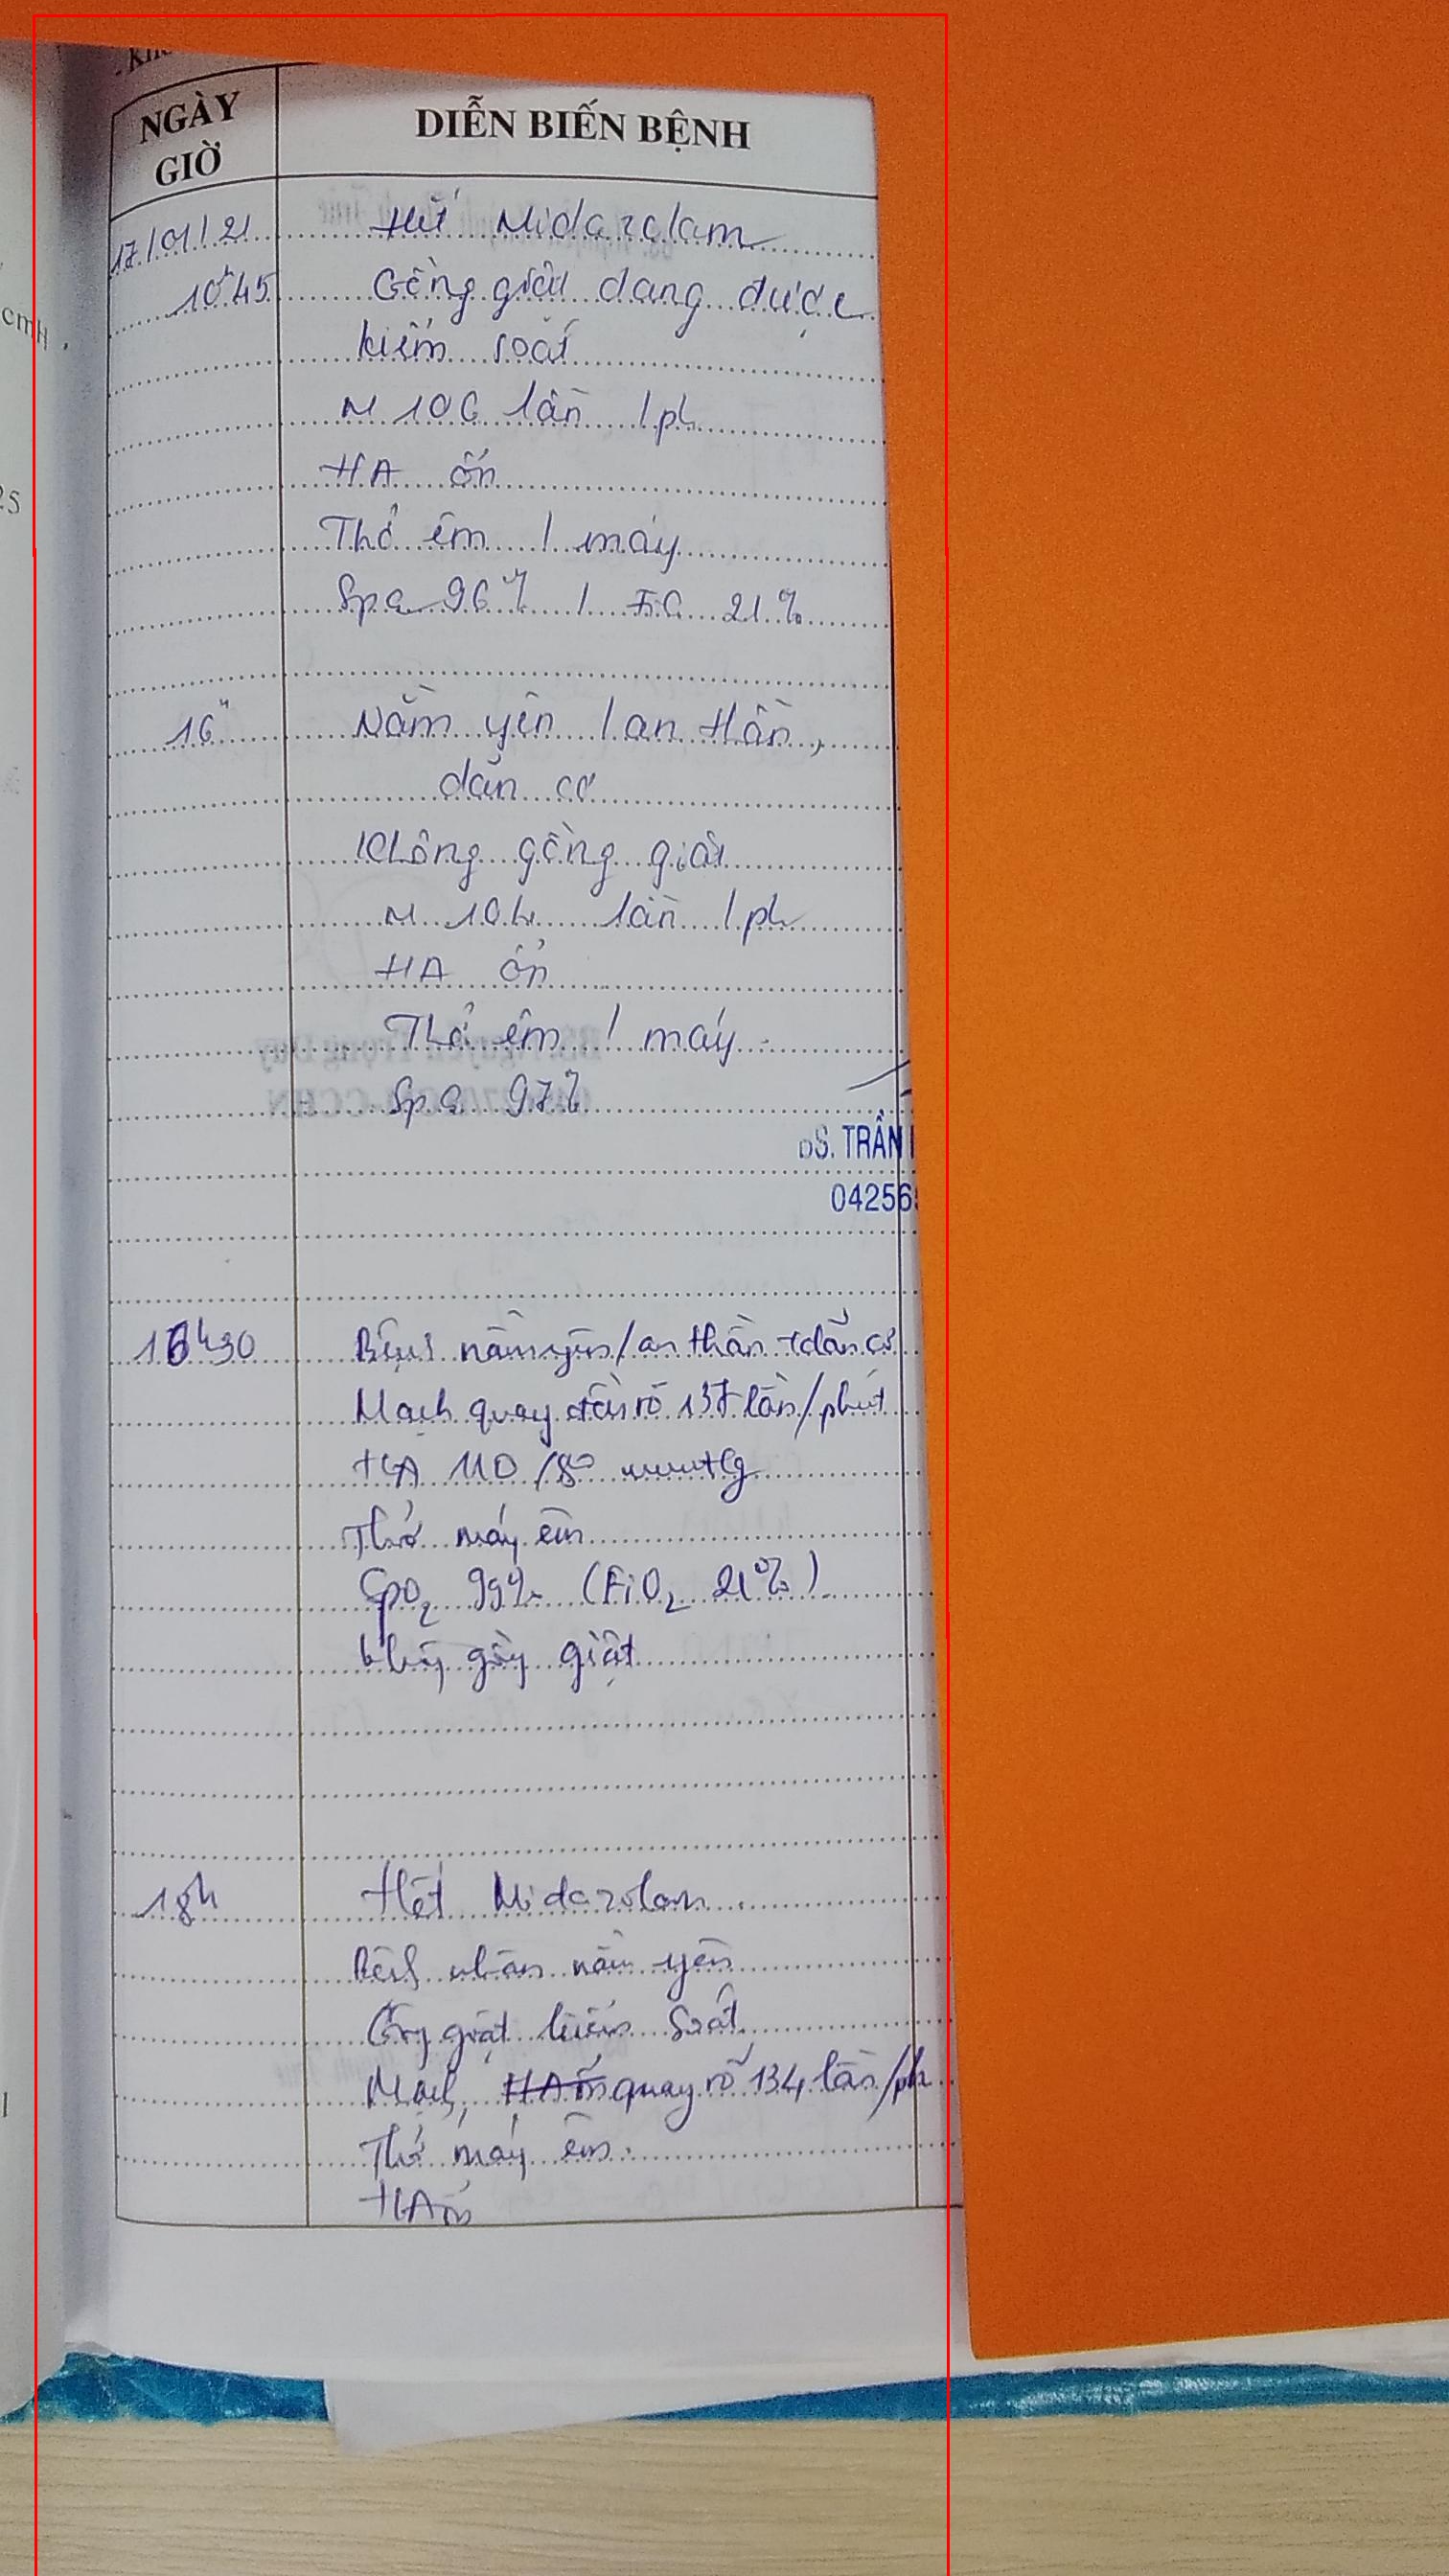 NGÀY GIỜ
DIỄN BIẾN BỆNH
17/01/21 Hết Midazolam
10h45 Gồng giật đang được
kiểm soát
M 106 lần /ph
HA ổn
Thở êm / máy
SpO2 96% / FiO2 21%
16h Nằm yên / an thần,
dãn cơ
Không gồng giật
M 104 lần /ph
HA ổn
Thở êm / máy
SpO2 97%
BS. TRẦN
04256
16h30 Bệnh nằm yên/an thần + dãn cơ
Mạch quay đều rõ 137 lần/phút
HA 110/80 mmHg
Thở máy êm
SpO2 99% (FiO2 21%)
không gồng giật
18h Hết Midazolam
Bệnh nhân nằm yên
Gồng giật kiểm soát
Mạch, quay rõ 134 lần/ph
Thở máy êm
HA ổn